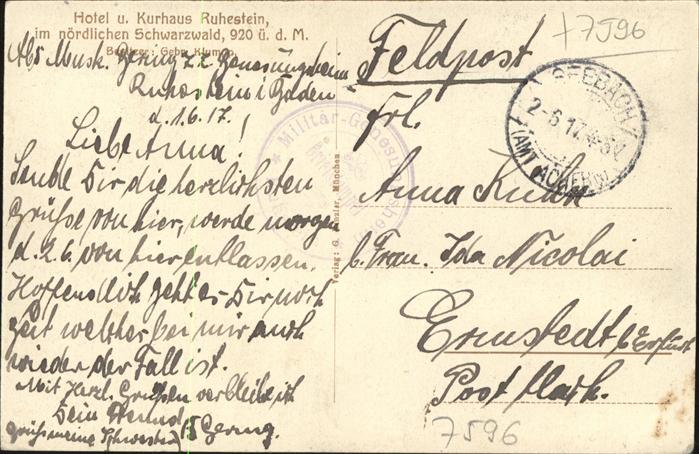 Hotel u. Kurhaus Ruhestein,
im nördlichen Schwarzwald, 920 ü. d. M.
Besitzer: Gebr. Klumpp.
Abs. Musk. Gering z.Z. Genesungsheim
Ruhestein i. Baden
d. 1.6.17.
Liebe Anna!
Sende Dir die herzlichsten
Grüße von hier, werde morgen
d. 2.6. von hier entlassen.
Hoffendlich geht es Dir noch
gut welches bei mir auch
wieder der Fall ist.
Mit Herzl. Grüßen verbleibe ich
Dein Freund
Gering.
grüße meine Schwester
Verlag: G. München
Militär-Genesungsheim
Feldpost
+7596
SEEBACH
2-6.17.4-5N.
(AMT ACHERN)
Frl.
Anna Kuhn
b. Frau. Ida Nicolai
Ermstedt b. Erfurt
Post Hach.
7596